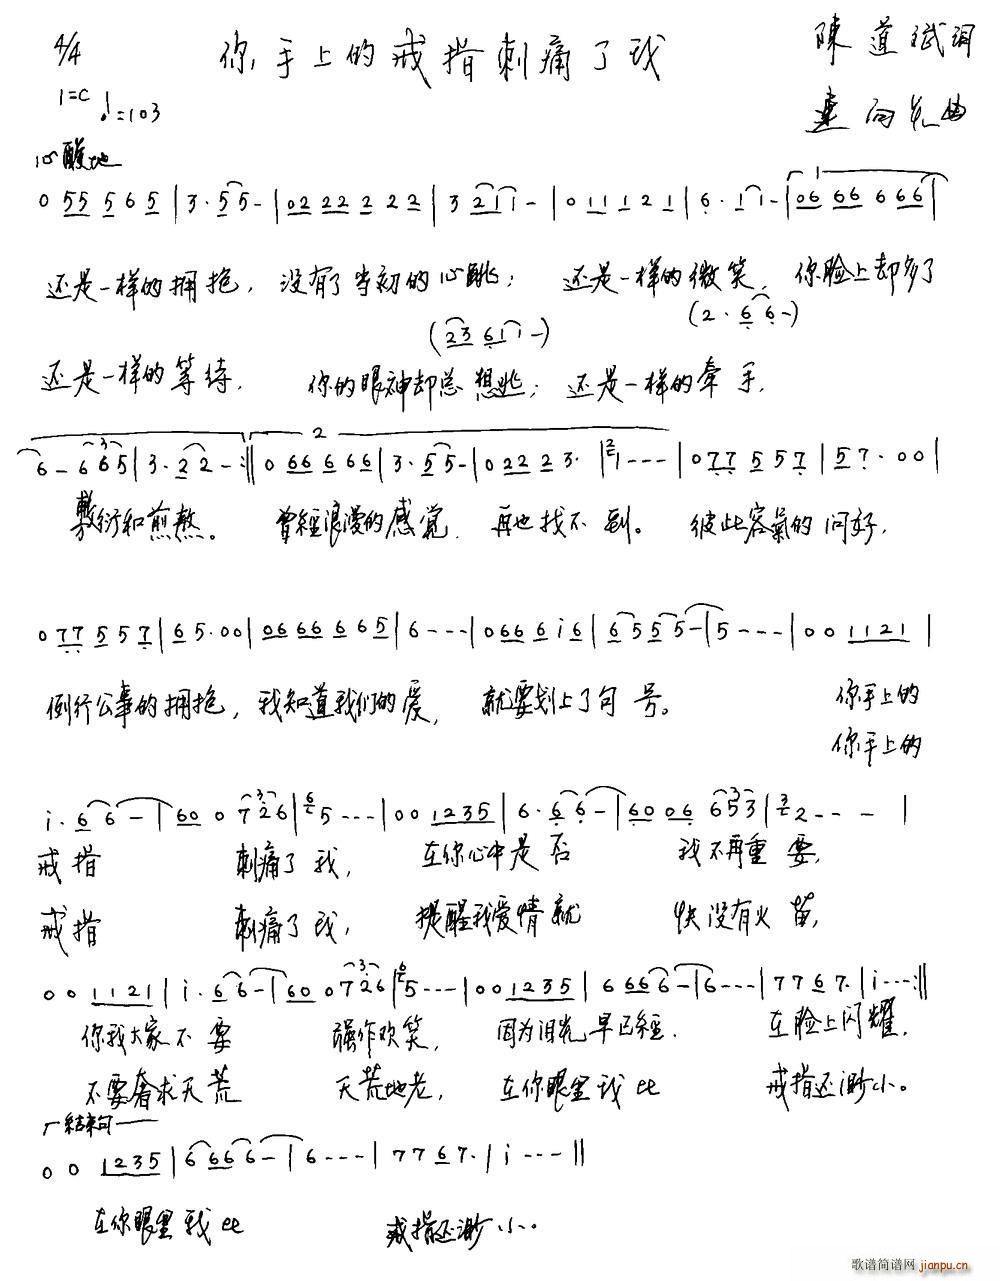 4/4 你手上的戒指刺痛了我 陳道斌词
1=C ♩=103 建向光 曲
心酸地
0 55 5 6 5 | 3 · 5 5 - | 02 22 2 2 2 | 3 2 1 1 - | 0 1 1 1 2 1 | 6 · 1 1 - | 06 66 6 66 |
还是一样的拥抱，没有了当初的心跳； 还是一样的微笑，你脸上却多了
(23 61 1 -) (2 · 6 6 -)
还是一样的等待， 你的眼神却总想逃； 还是一样的牵手，
6 - 6 6 5 | 3 · 2 2 - :|| 0 66 6 6 6 | 3 · 5 5 - | 0 22 2 3 · | 2 1 - - - | 0 77 5 5 7 | 5 7 · 0 0 |
敷衍和煎熬。 曾經浪漫的感觉 再也找不到。 彼此客氣的问好，
0 77 5 5 7 | 6 5 · 00 | 06 66 6 6 5 | 6 - - - | 0 66 6 i 6 | 6 5 5 5 - | 5 - - - | 0 0 1121 |
例行公事的拥抱，我知道我们的爱， 就要划上了句号。 你手上的
你手上的
i · 6 6 - | 60 0 7 2 6 | 6 5 · - - - | 0 0 1235 | 6 · 6 6 - | 60 06 6 5 3 | 3 2 - - - |
戒指 刺痛了我， 在你心中是否 我不再重要，
戒指 刺痛了我， 提醒我爱情就 快没有火苗，
0 0 1121 | i · 6 6 - | 60 0 7 2 6 | 6 5 - - - | 0 0 1235 | 6 66 6 6 - | 6 - - - | 7 7 6 7 · | i - - - :||
你我大家不要 强作欢笑， 因为泪光早已經 在脸上闪耀，
不要奢求天荒 天荒地老， 在你眼里我比 戒指还渺小。
结束句
0 0 1235 | 6 6 6 6 6 - | 6 - - - | 7 7 6 7 · | i - - - ||
在你眼里我比 戒指还渺小。
歌谱简谱网 jianpu.cn